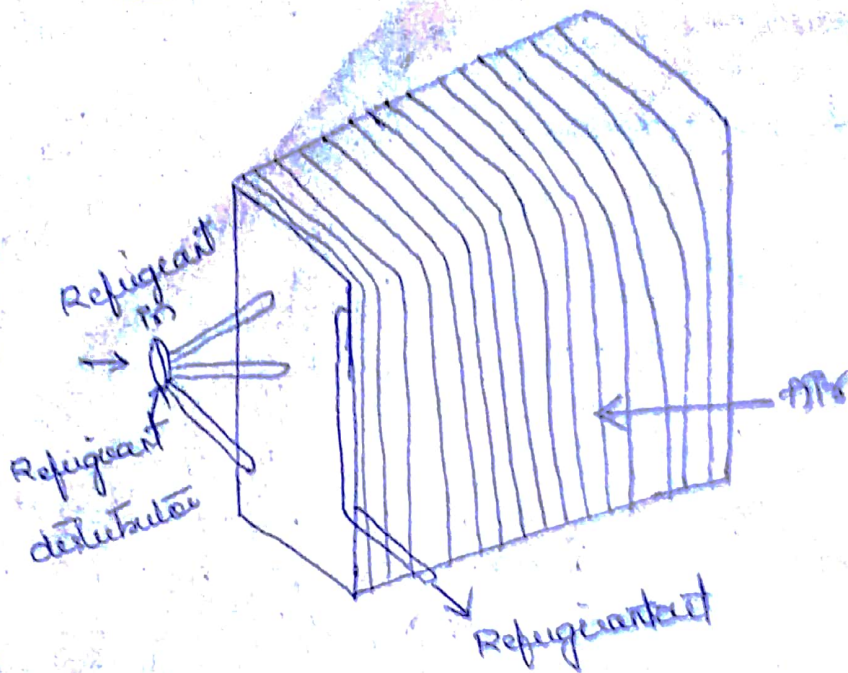 Refrigerant
in
Refrigerant
distributor
Air
Refrigerant out